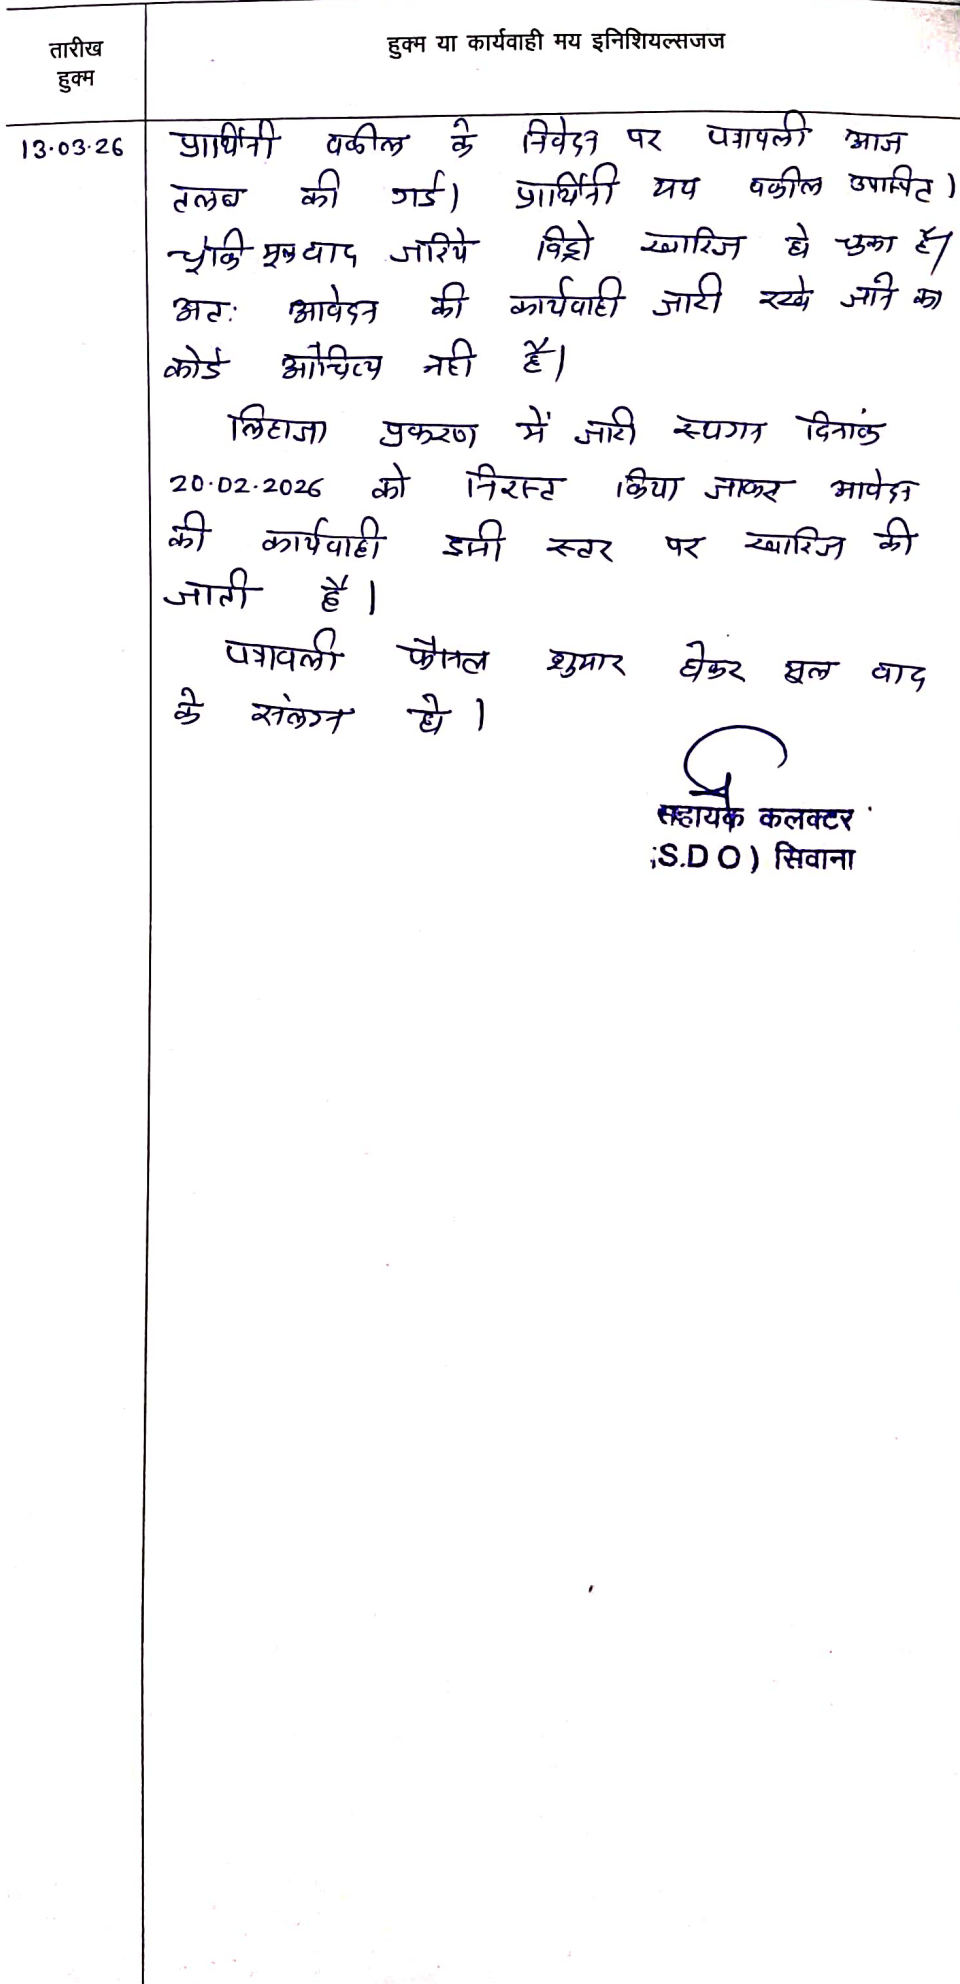 तारीख
हुक्म
हुक्म या कार्यवाही मय इनिशियल्सजज
13.03.26
प्रार्थिनी वकील के निवेदन पर पत्रावली आज
तलब की गई। प्रार्थिनी मय वकील उपस्थित।
चूंकि मूल वाद जरिये विड्रो खारिज हो चुका है।
अतः आवेदन की कार्यवाही जारी रखे जाने का
कोई औचित्य नही है।
लिहाजा प्रकरण में जारी स्थगन दिनांक
20.02.2026 को निरस्त किया जाकर आवेदन
की कार्यवाही इसी स्तर पर खारिज की
जाती है।
पत्रावली फैसल शुमार होकर मूल वाद
के संलग्न हो।
सहायक कलक्टर
(S.D.O) सिवाना